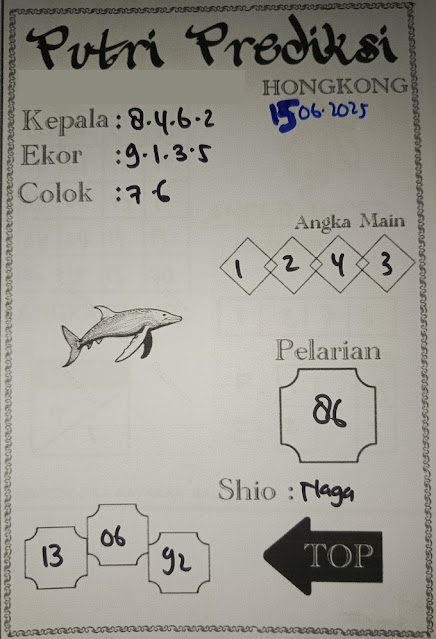 Putri Prediksi
HONGKONG
15 06.2025
Kepala : 8.4.6.2
Ekor : 9.1.3.5
Colok : 7.6
Angka Main
1 2 4 3
Pelarian
86
Shio : Naga
13 06 92
TOP